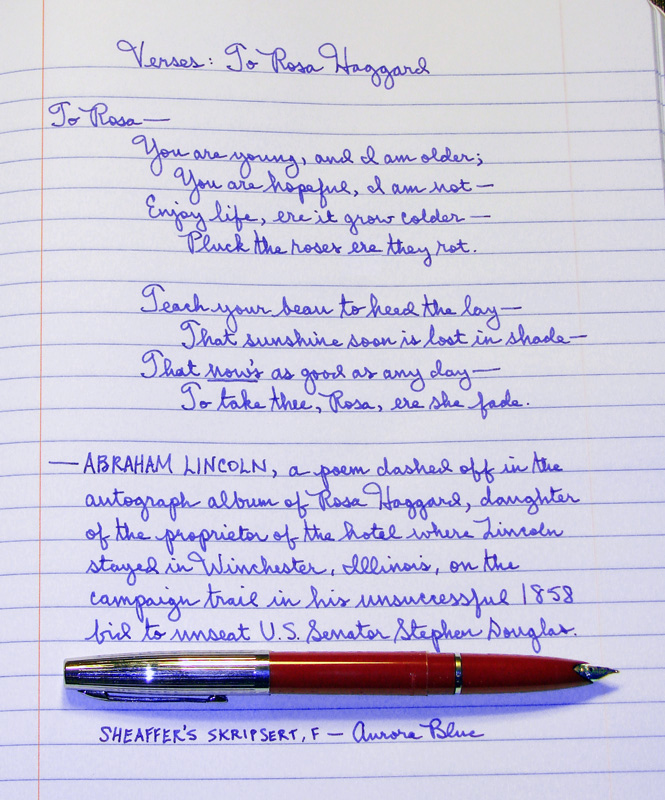 Verses: To Rosa Haggard
To Rosa—
You are young, and I am older;
You are hopeful, I am not—
Enjoy life, ere it grow colder—
Pluck the roses ere they rot.
Teach your beau to heed the lay—
That sunshine soon is lost in shade—
That now's as good as any day—
To take thee, Rosa, ere she fade.
— ABRAHAM LINCOLN, a poem dashed off in the
autograph album of Rosa Haggard, daughter
of the proprietor of the hotel where Lincoln
stayed in Winchester, Illinois, on the
campaign trail in his unsuccessful 1858
bid to unseat U.S. Senator Stephen Douglas.
SHEAFFER'S SKRIPSERT, F — Aurora Blue